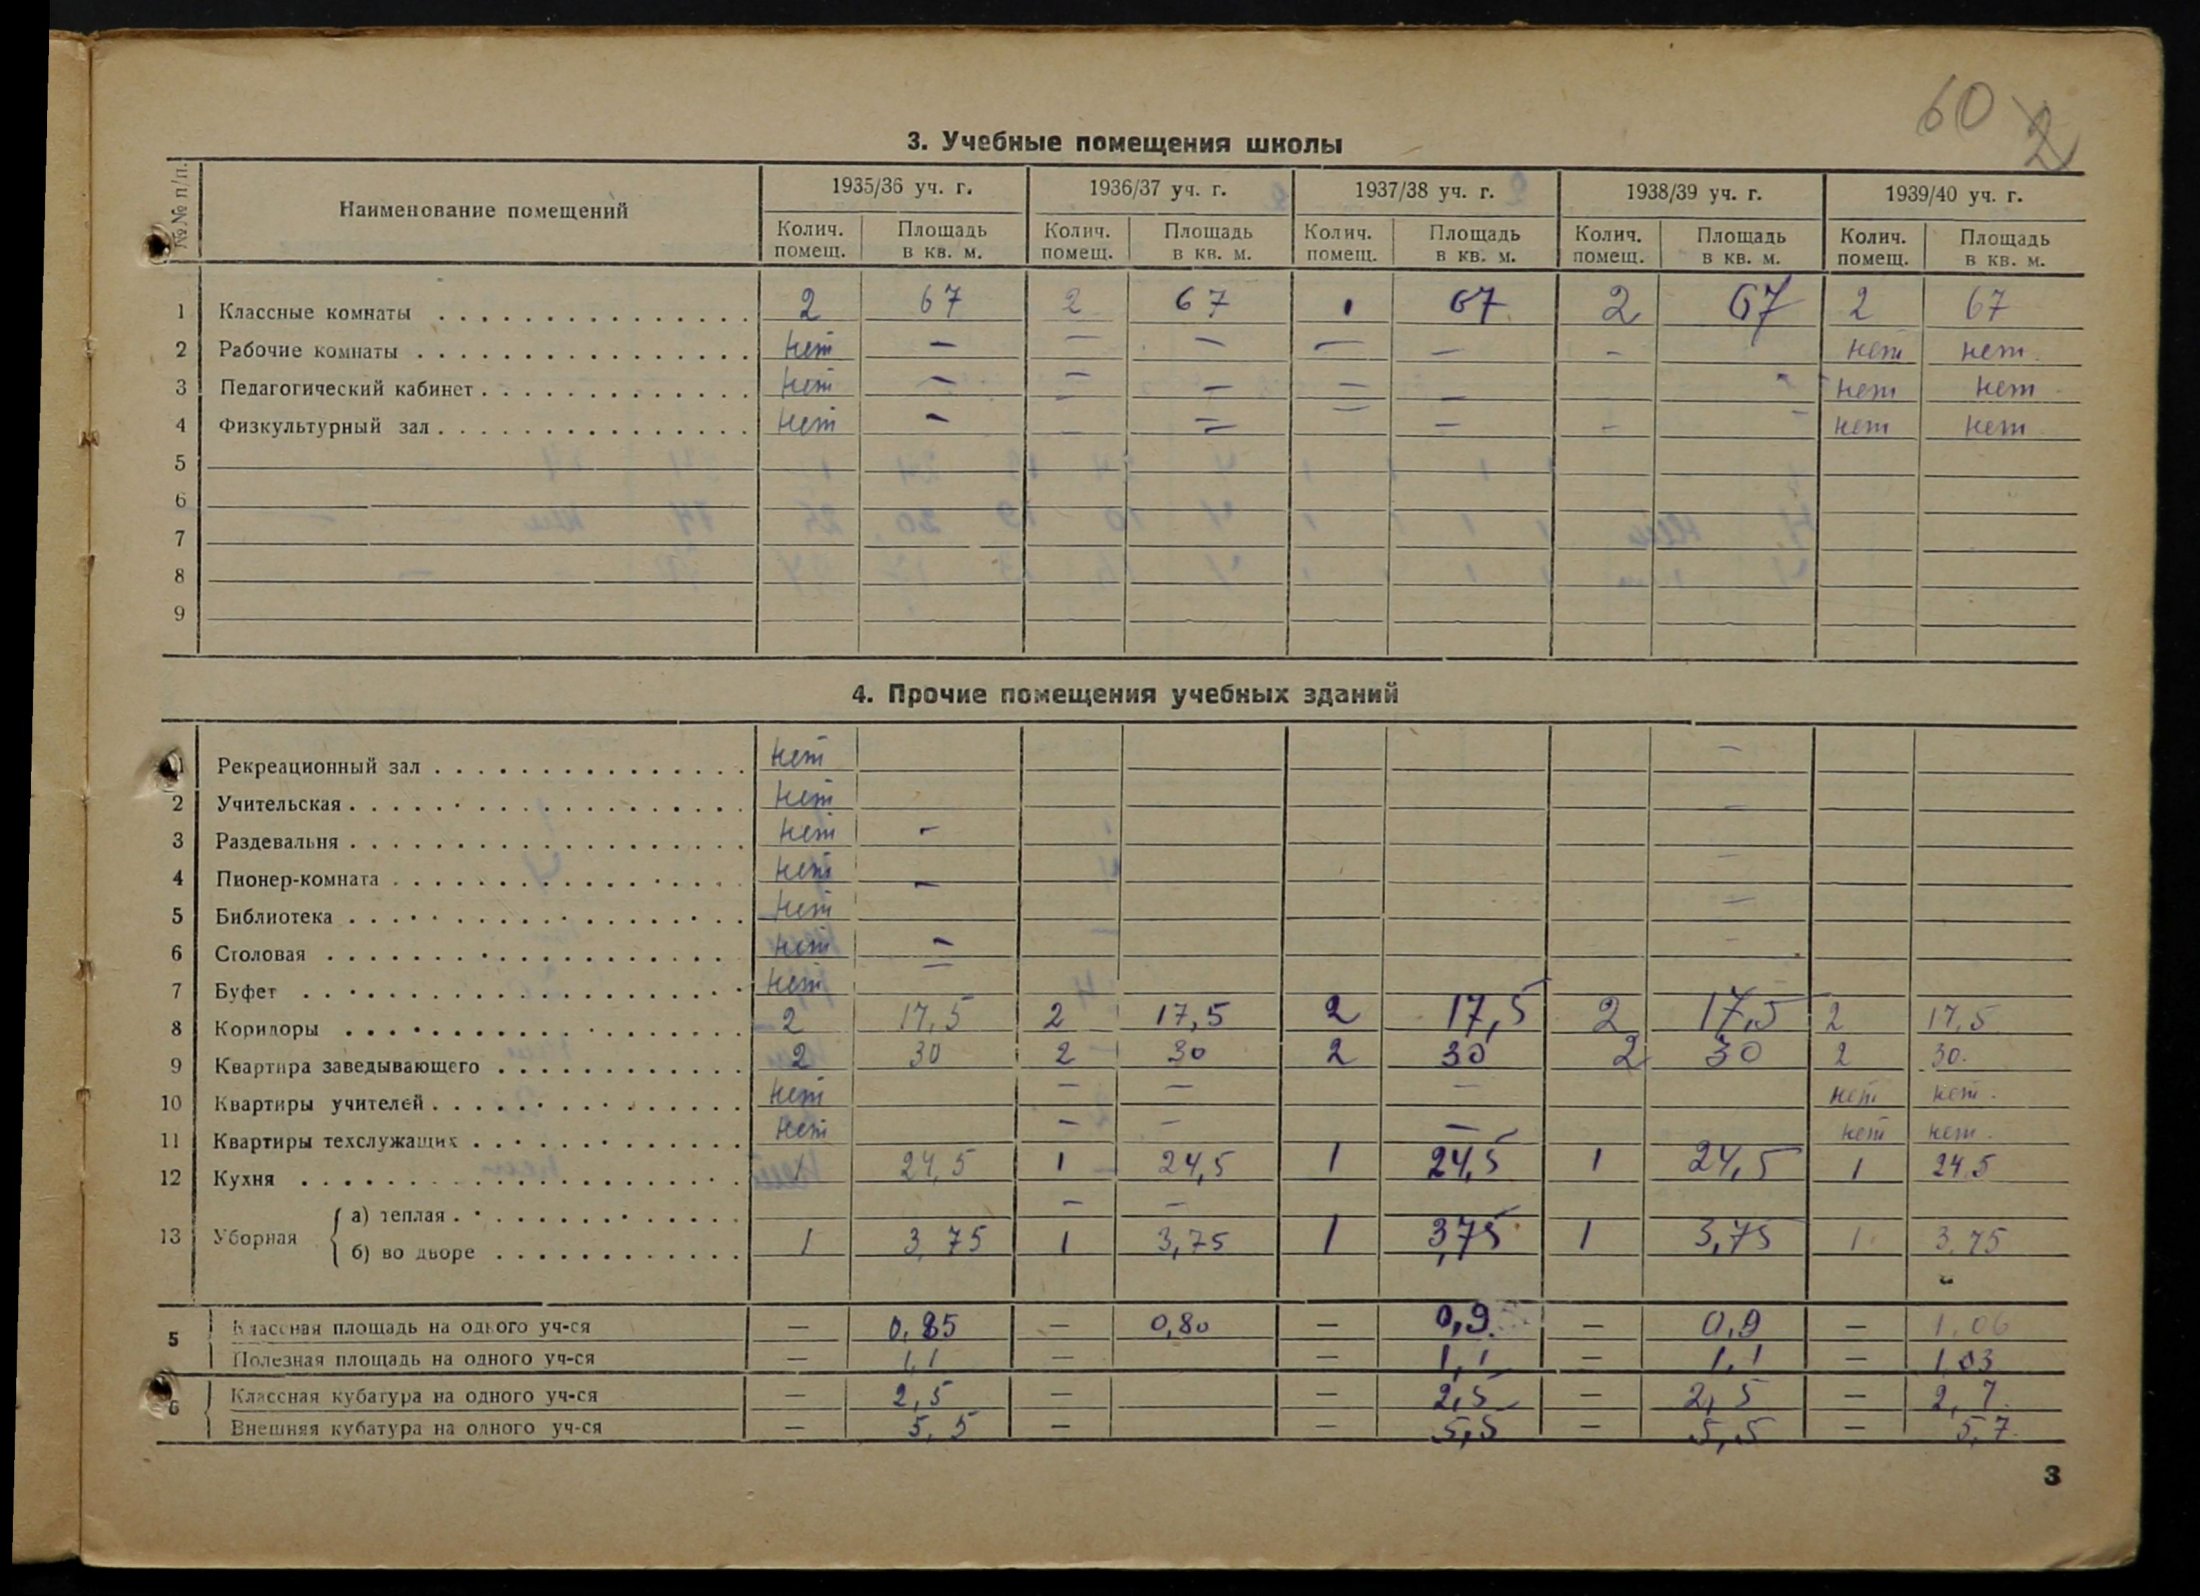 60 2
3. Учебные помещения школы
№№ п/п. Наименование помещений 1935/36 уч. г. 1936/37 уч. г. 1937/38 уч. г. 1938/39 уч. г. 1939/40 уч. г.
Колич. помещ. Площадь в кв. м. Колич. помещ. Площадь в кв. м. Колич. помещ. Площадь в кв. м. Колич. помещ. Площадь в кв. м. Колич. помещ. Площадь в кв. м.
1 Классные комнаты 2 67 2 67 67 2 67 2 67
2 Рабочие комнаты нет — — — — — — нет нет.
3 Педагогический кабинет нет — — — — — - нет нет.
4 Физкультурный зал нет — — — — — — - нет нет.
5
6
7
8
9
4. Прочие помещения учебных зданий
Рекреационный зал нет —
2 Учительская нет —
3 Раздевальня нет —
4 Пионер-комната нет — —
5 Библиотека нет —
6 Столовая нет — —
7 Буфет нет —
8 Коридоры 2 17,5 2 17,5 2 17,5 2 17,5 2 17,5
9 Квартира заведывающего 2 30 2 30 2 30 2 30 2 30.
10 Квартиры учителей нет — — — нет нет.
11 Квартиры техслужащих нет — — — нет нет.
12 Кухня 24,5 1 24,5 1 24,5 1 24,5 1 24.5
13 Уборная а) теплая — —
б) во дворе 1 3,75 1 3,75 1 3,75 1 3,75 1 3,75
5 Классная площадь на одного уч-ся — 0,85 — 0,80 — 0,9 — 0,9 — 1,06
Полезная площадь на одного уч-ся — 1,1 — — 1,1 — 1,1 — 1,03
6 Классная кубатура на одного уч-ся — 2,5 — — 2,5 — 2,5 — 2,7.
Внешняя кубатура на одного уч-ся — 5,5 — — 5,5 — 5,5 — 5,7.
3